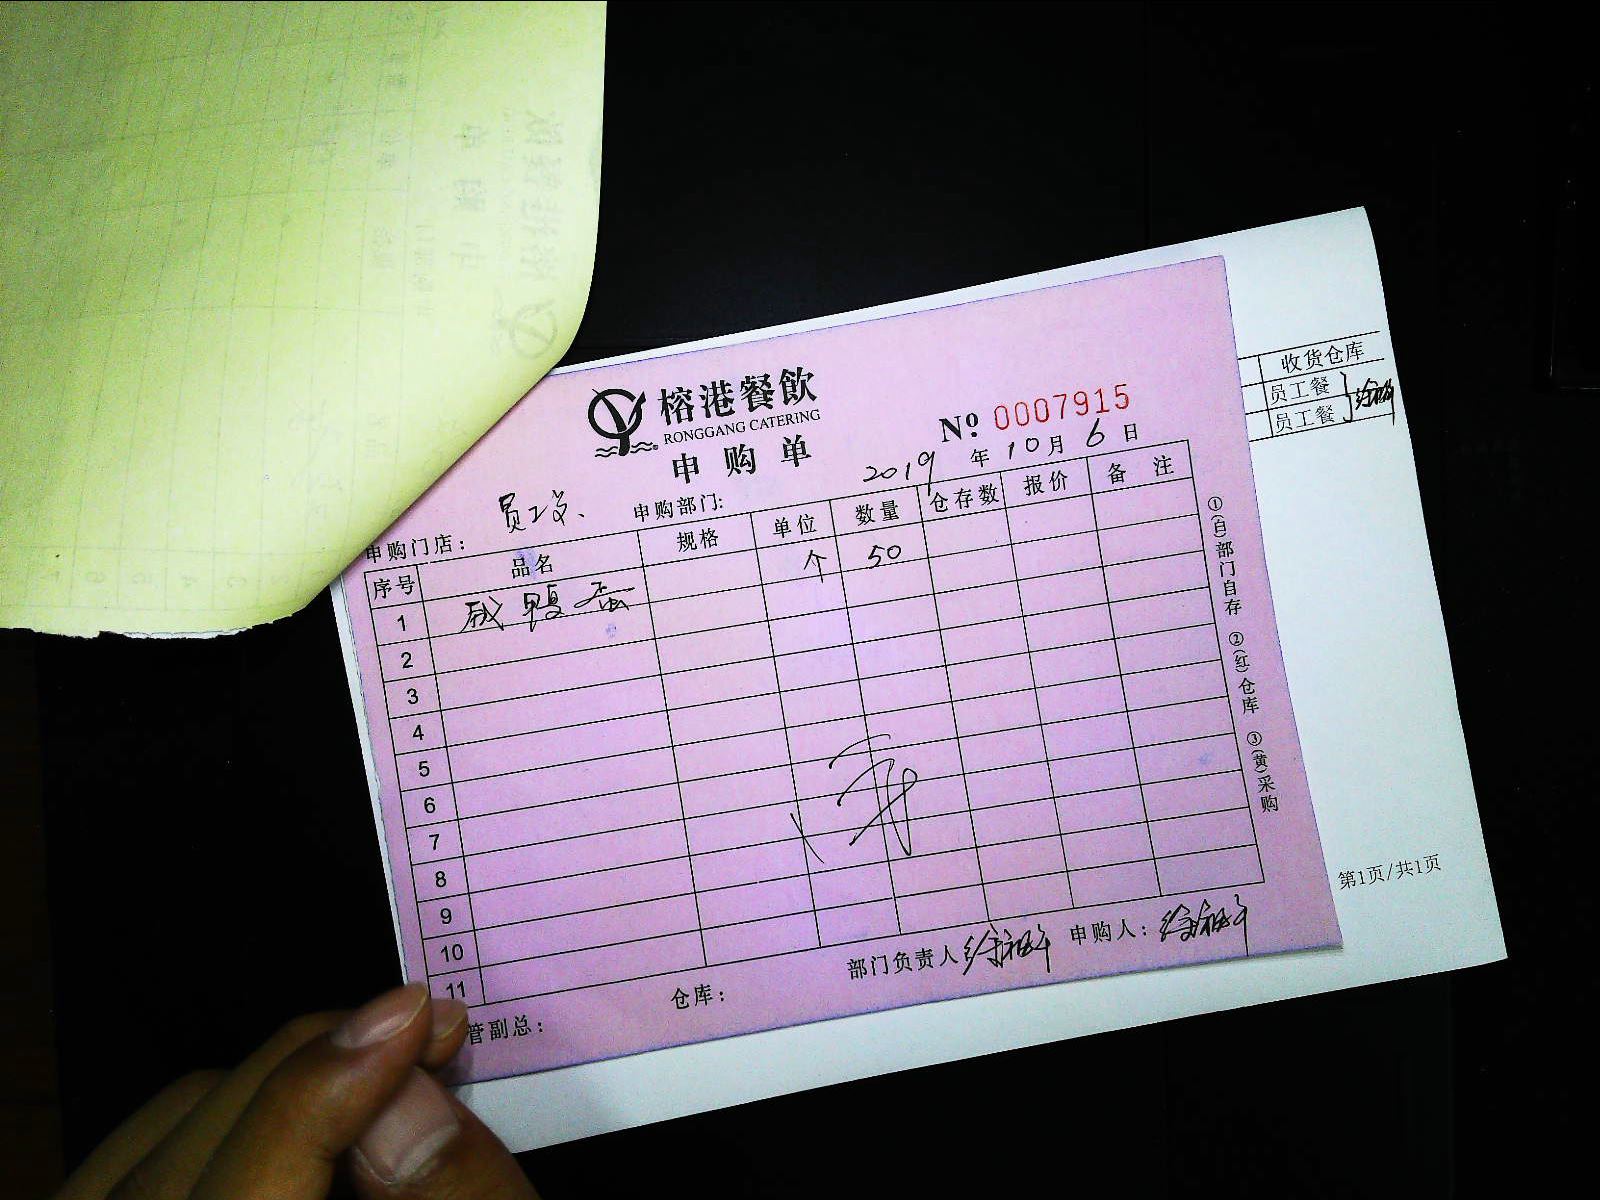 榕港餐飲
RONGGANG CATERING
申购单
Nº 0007915
2019年10月6日
申购门店: 员工 申购部门:
序号 品名 规格 单位 数量 仓存数 报价 备注
1 咸鸭蛋 个 50
2
3
4
5
6
7
8
9
10
11
管副总: 仓库: 部门负责人 申购人:
①(白)部门自存 ②(红)仓库 ③(黄)采购
收货仓库
员工餐
员工餐
第1页/共1页